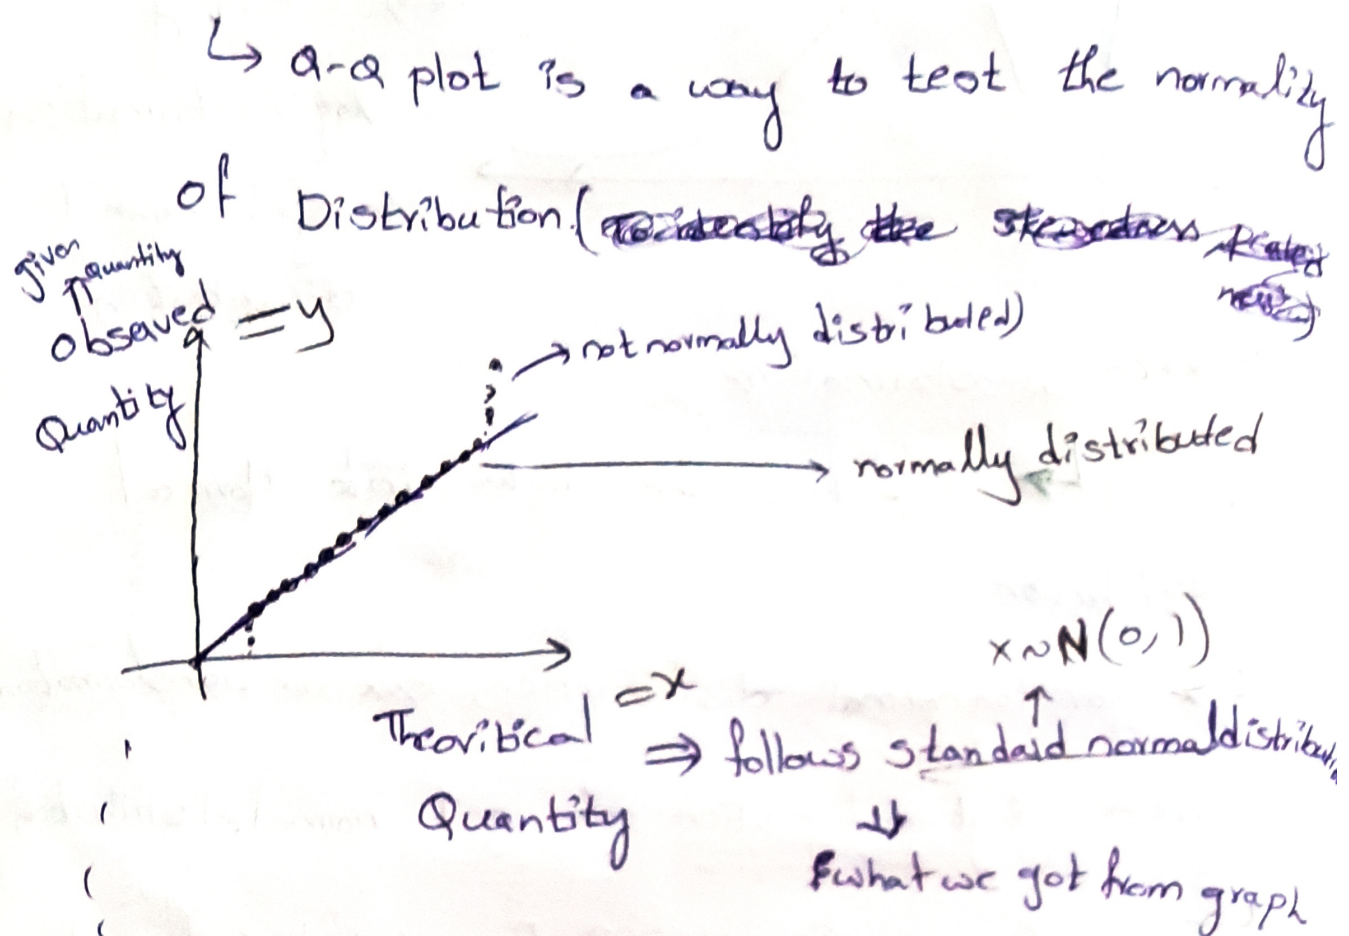 ↳ Q-Q plot is a way to test the normality
of Distribution.(
given
quantity
⇑
obseved = y
Quantity
→ not normally distributed)
→ normally distributed
x ~ N(0,1)
↑
= x
Theoritical ⇒ follows standard normal
Quantity
⇓
what we got from graph